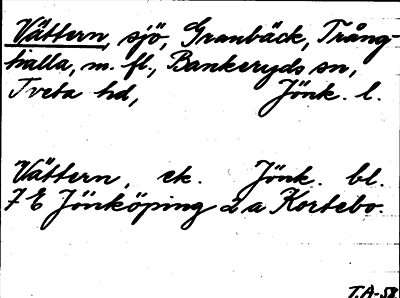 Vättern, sjö, Granbäck, Trång-
halla, m. fl., Bankeryds sn,
Tveta hd, Jönk. l.
Vättern, ek. Jönk. bl.
7 E Jönköping 2 a Kortebo.
T.A-58